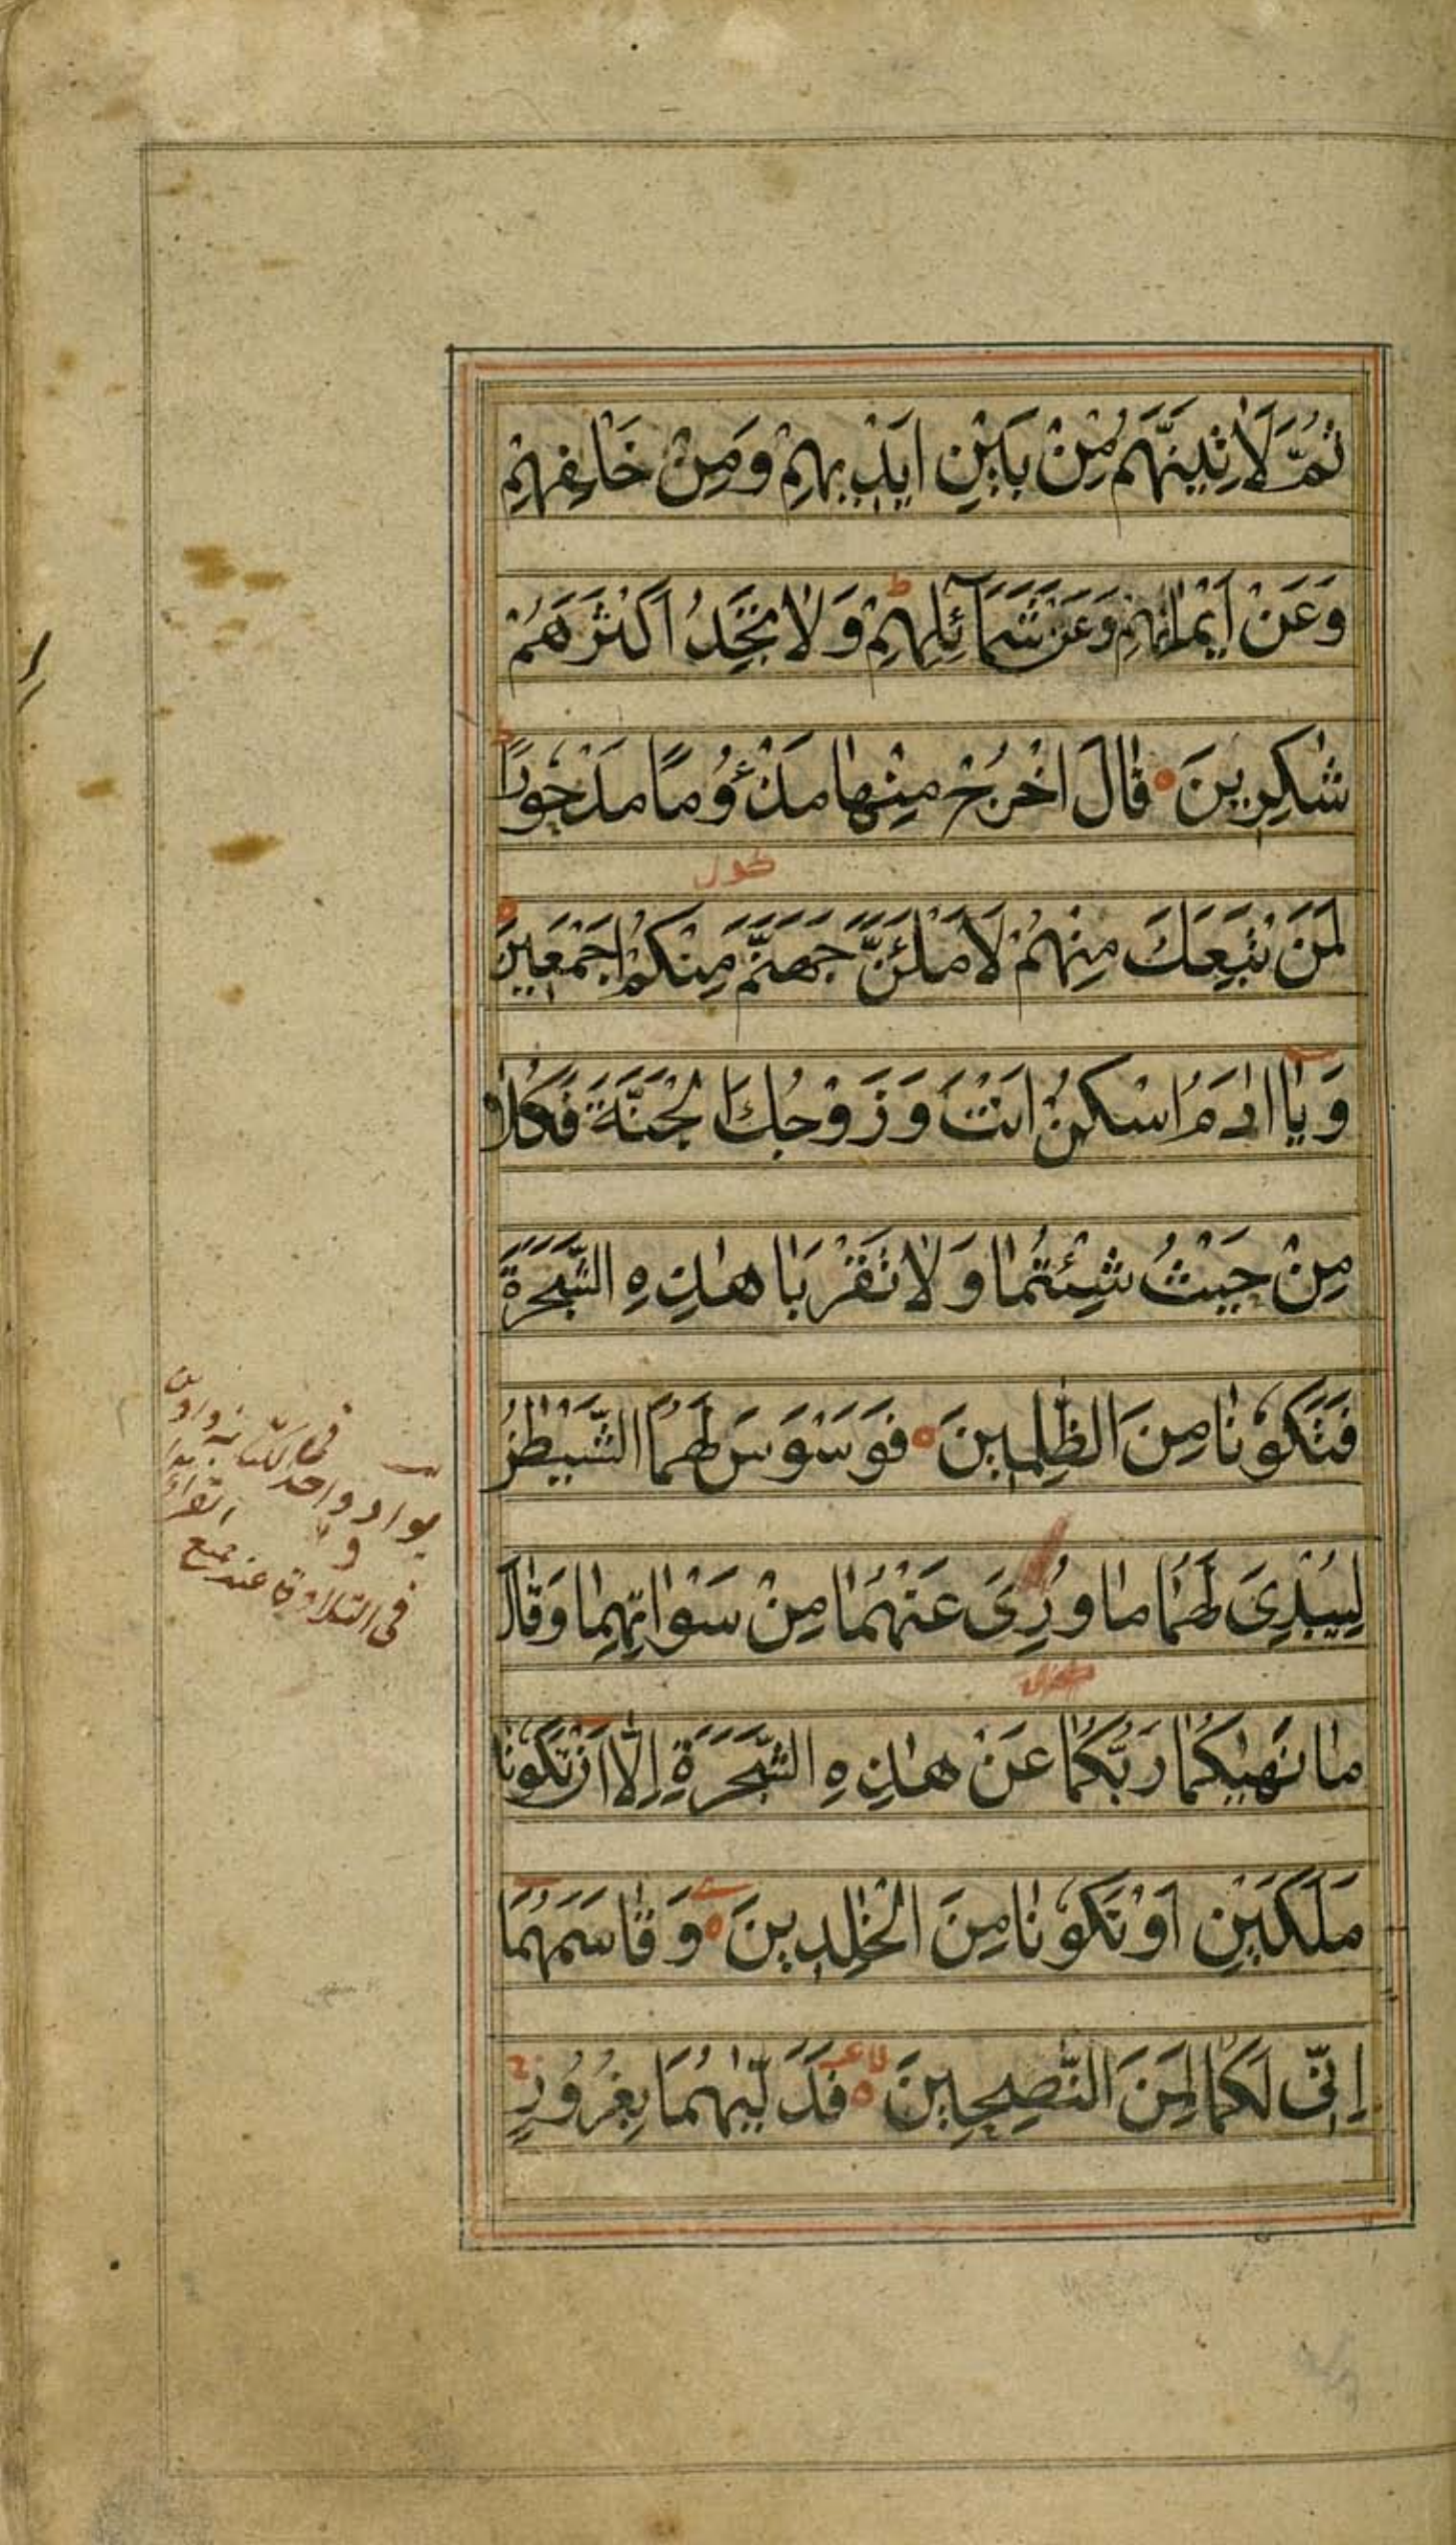 ثُمَّ لَاٰتِيَنَّهُمْ مِنْ بَيْنِ اَيْدِيهِمْ وَمِنْ خَلْفِهِمْ
وَعَنْ اَيْمٰانِهِمْ وَعَنْ شَمَآئِلِهِمْ ط وَلٰا تَجِدُ اَكْثَرَهُمْ
شٰكِرِينَ ه قٰالَ اخْرُجْ مِنْهٰا مَذْؤُمًا مَدْحُورًا ط
لَمَنْ تَبِعَكَ مِنْهُمْ لَاَمْلَئَنَّ جَهَنَّمَ مِنْكُمْ اَجْمَعِينَ ه
وَيٰااٰدَمُ اسْكُنْ اَنْتَ وَزَوْجُكَ الْجَنَّةَ فَكُلٰا
مِنْ حَيْثُ شِئْتُمٰا وَلٰا تَقْرَبٰا هٰذِهِ الشَّجَرَةَ
فَتَكُونٰا مِنَ الظّٰلِمِينَ ه فَوَسْوَسَ لَهُمَا الشَّيْطٰنُ
لِيُبْدِيَ لَهُمٰا مٰا وُرِيَ عَنْهُمٰا مِنْ سَوْاٰتِهِمٰا وَقٰالَ
مٰا نَهٰيكُمٰا رَبُّكُمٰا عَنْ هٰذِهِ الشَّجَرَةِ اِلَّا اَنْ تَكُونٰا
مَلَكَيْنِ اَوْ تَكُونٰا مِنَ الْخٰلِدِينَ ه وَقٰاسَمَهُمٰا
اِنِّي لَكُمٰا لَمِنَ النّٰصِحِينَ ه فَدَلّٰيهُمٰا بِغُرُورٍ
بواو واحد
فى التلاوة عند جميع
القراء